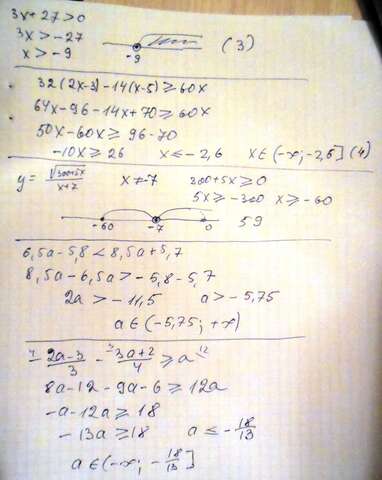 3x+27>0
3x>-27
x>-9
-9
(3)
32(2x-3)-14(x-5)≥60x
64x-96-14x+70≥60x
50x-60x≥96-70
-10x≥26 x≤-2,6 x∈(-∞;-2,6] (4)
y= √300+5x / x+7 x≠-7 300+5x≥0
5x≥-300 x≥-60
-60 -7 0 59
6,5a-5,8<8,5a+5,7
8,5a-6,5a>-5,8-5,7
2a>-11,5 a>-5,75
a∈(-5,75;+∞)
4 2a-3/3 - 3 3a+2/4 ≥a 12
8a-12-9a-6≥12a
-a-12a≥18
-13a≥18 a≤-18/13
a∈(-∞;-18/13]